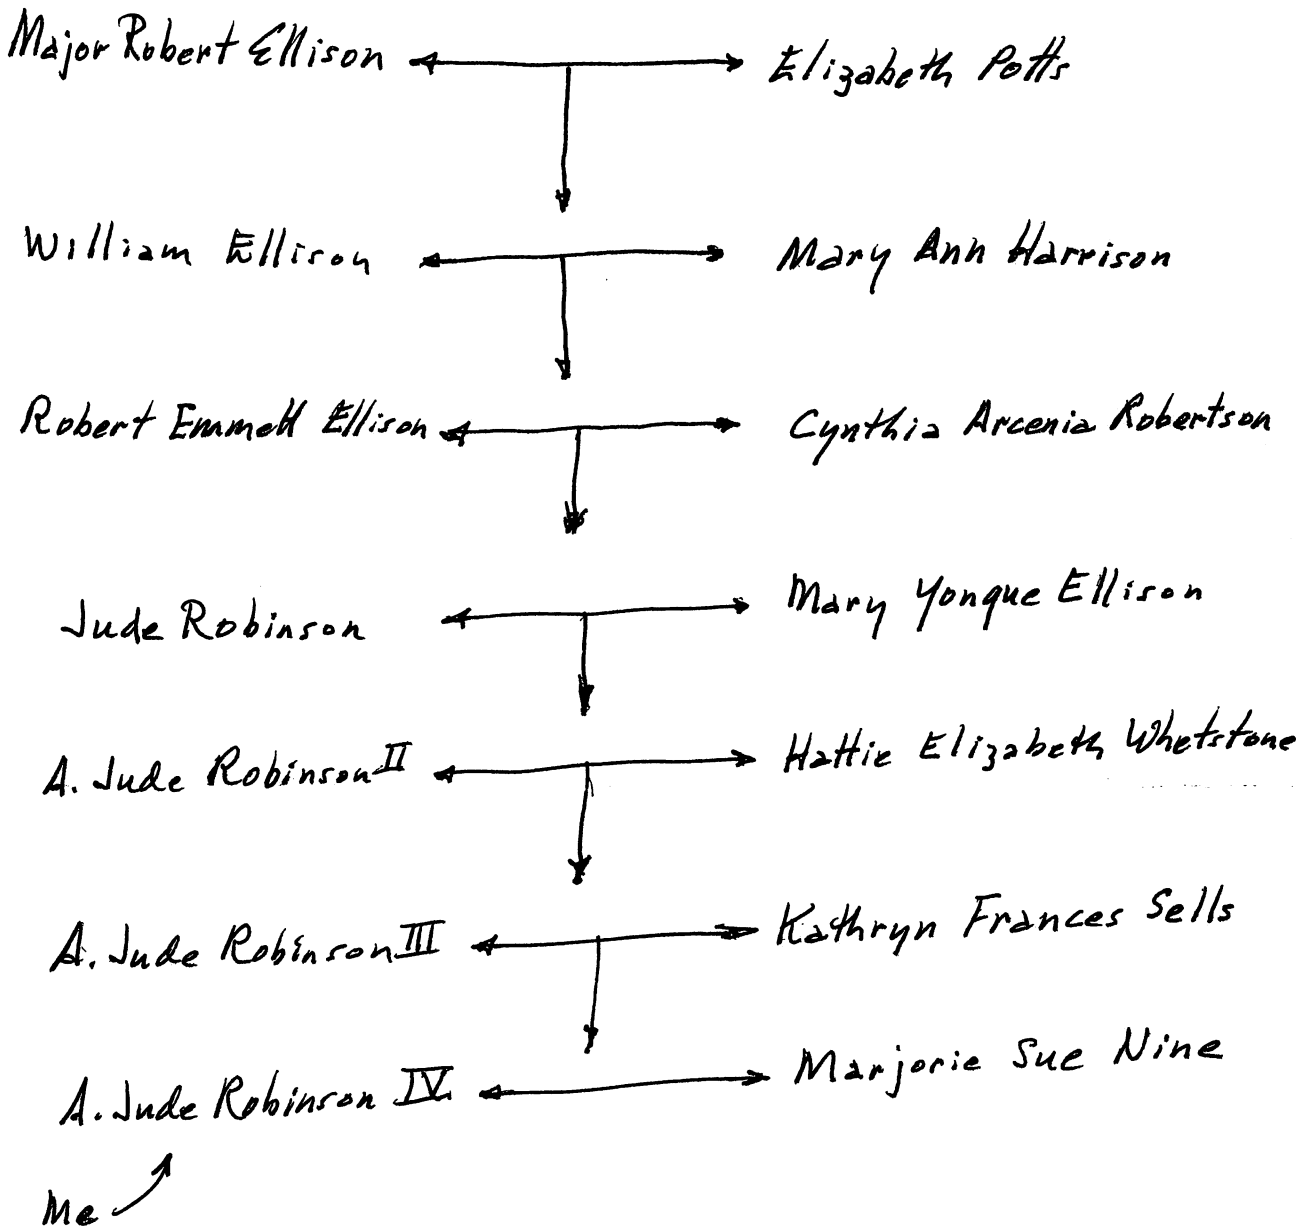 Major Robert Ellison Elizabeth Potts
William Ellison Mary Ann Harrison
Robert Emmett Ellison Cynthia Arcenia Robertson
Jude Robinson Mary Yongue Ellison
A. Jude Robinson II Hattie Elizabeth Whetstone
A. Jude Robinson III Kathryn Frances Sells
A. Jude Robinson IV Marjorie Sue Nine
Me